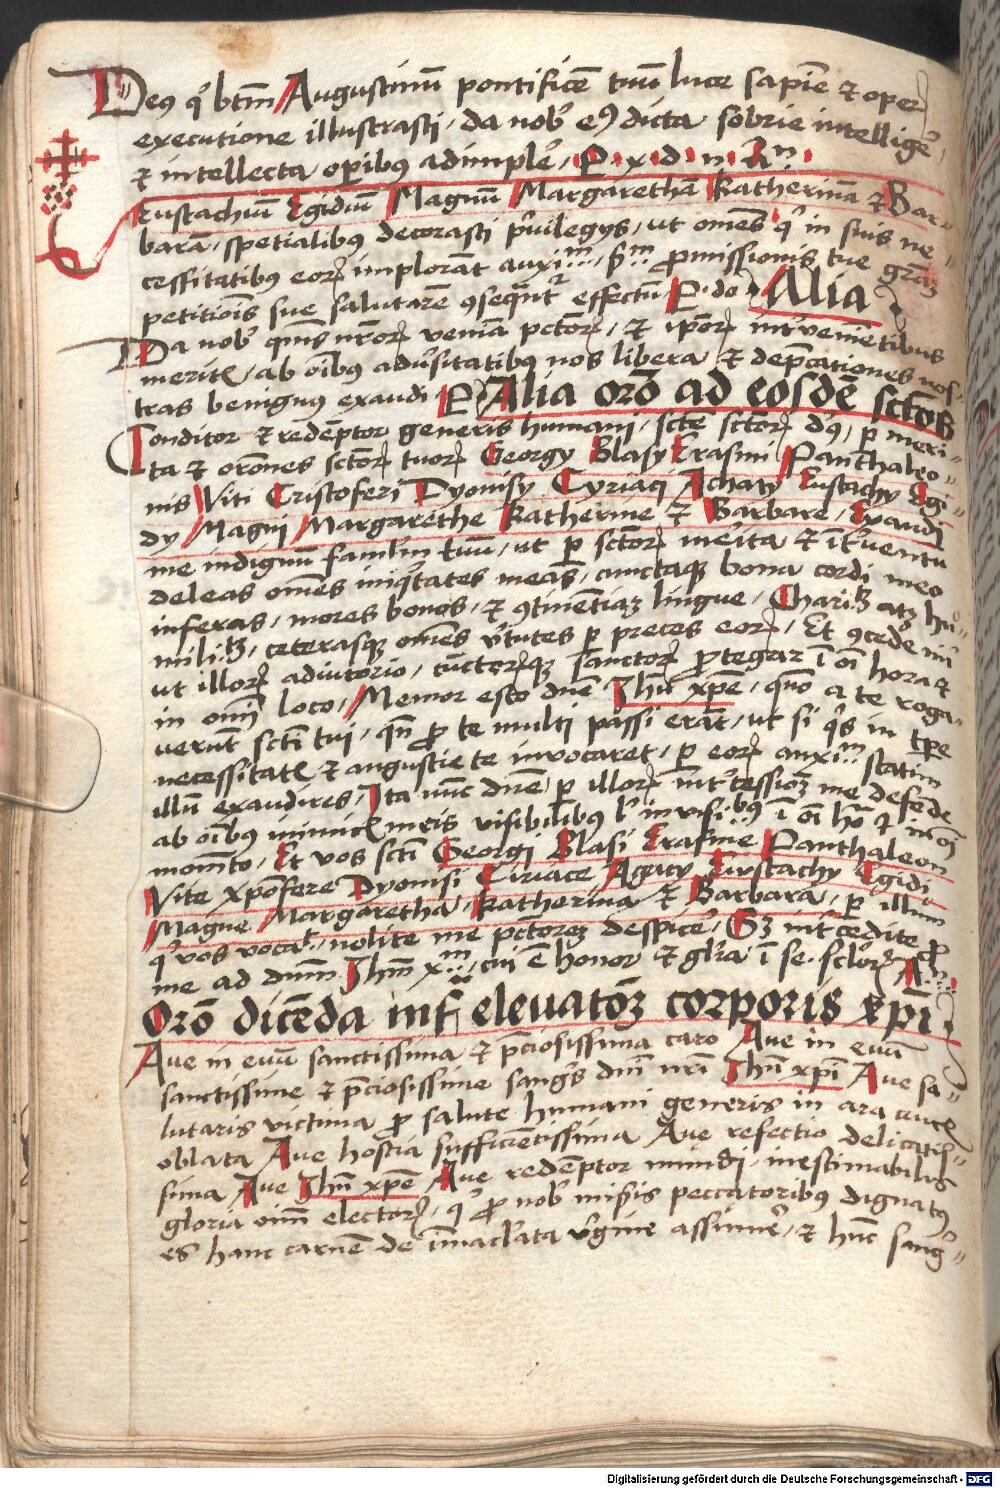 Deꝰ qͥ btm̄ Augustinū pontificē tuū luce sapiē ⁊ oper̄
executione illustrasti / da nobᷤ eiꝰ dicta sobrie intelligeꝰ /
⁊ intellecta oꝑibus adimpleꝰ / P · x · d · n · Aᵐ
Eustachiū Egidiū Magnū Margarethā Katherinā ⁊ Bar-
barā / spetialibus decorasti pͥuilegys / ut om̄es qͥ in suis ne
cessitatibus eoꝝ implorāt auxiᵐ / pᵐ ꝓmissionis tue grāꝫ
petitiōis sue salutarē ꝯseqūatᷣ effectū P · de Alia
Da nobᷤ qm̄s nr̄oꝝ veniā pctōꝝ / ⁊ ip̄oꝝ intᷣvenietibus
meritꝭ / ab oībus aduᷣsitatibus nos libera ⁊ dep̄cationes nos-
tras benignus exaudi P Alia or̄o ad eosdē sctōs
Conditor ⁊ redēptor generis humani / sctē sctōꝝ dꝰ / ꝑ meri-
ta ⁊ or̄ones sctōꝝ tuoꝝ Georgy Blasy Erasmi Panthaleo-
nis Viti Cristoferi Dyonisy Cyriaci Achaty Eustachy Egi-
dy Magni Margarethe Katherine ⁊ Barbare / Exaudi
me indignū famlm̄ tuū / ut ꝑ sctōꝝ meͥita ⁊ ītᷣuentu
deleas om̄es iniqͥtates meas / cunctaqꝫ bona cordi meo
inferas / mores bonos / ⁊ ꝯtinentiaꝫ lingue / Charitꝫ atqꝫ hu-
militꝫ / ceterasqꝫ om̄es vͥtutes ꝑ preces eoꝝ / Et ꝯcede mͥ
ut illoꝝ adiutorio / cūctoꝝqꝫ sanctoꝝ ꝓtegar ī oī hora ⁊
in omī loco / Memor esto dn̄e Ihū xp̄e / quō a te roga-
verūt sctī tui / qn̄ ꝓ te multi passi erāt / ut si qͥs in tpe
necessitatꝭ ⁊ angustie te invocaret / ꝑ eoꝝ auxiᵐ statim
illū exaudires / Ita nūc dn̄e ꝑ illoꝝ intᷣcessioꝫ me defēde
ab oībus inimicꝭ meis visibilibus lͥ invisiᵇᵘˢ ī oī hō ⁊ in oī
momēto / Et vos sctī Georgi Blasi Erasme Panthaleon
Vite xpofere Dyonisi Ciriace Agacy Eustachy Egidi
Magne Margaretha / Katherina ⁊ Barbara / ꝑ illum
qͥ vos vocaͭ / nolite me pctōreꝫ despiceꝰ / Sꝫ intᷣcedite ꝓ
me ad dnm̄ Ihm̄ xᵐ / cui ē honor ⁊ glͥa ī se · sclōꝝ Aᵐ
Or̄o dicēda inf elevatōꝫ corporis xp̄i
Aue in euū sanctissima ⁊ p̄ciosissima caro Aue in euū
sanctissime ⁊ p̄ciosissime sangͥs dnī nr̄i Ihū xp̄i Aue sa-
lutaris victima ꝓ salute humani generis in ara crucꝭ
oblata Aue hostia sufficientissima Aue refectio delicatis-
sima Aue Ihū xp̄e Aue redēptor mundi / inestimabilis
gloria oīm electoꝝ / qͥ ꝓ nobᷤ misͥis peccatoribus dignatꝰ
es hanc carnē de īmaclata vͥgine assumeꝰ / ⁊ hūc sangͥ-
Digitalisierung gefördert durch die Deutsche Forschungsgemeinschaft - DFG